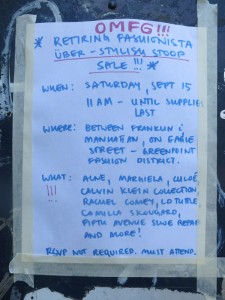 OMFG!!!
* RETIRING FASHIONISTA
ÜBER-STYLISH STOOP
SALE!!! *
WHEN: SATURDAY, SEPT 15
11AM - UNTIL SUPPLIES
LAST
WHERE: BETWEEN FRANKLIN &
MANHATTAN, ON EAGLE
STREET - GREENPOINT
FASHION DISTRICT.
WHAT: ACNE, MARGIELA, CHLOÉ,
!!! CALVIN KLEIN COLLECTION,
RACHEL COMEY, LD TUTTLE,
CAMILLA SKOVGAARD,
FIFTH AVENUE SHOE REPAIR
AND MORE!
RSVP NOT REQUIRED. MUST ATTEND.